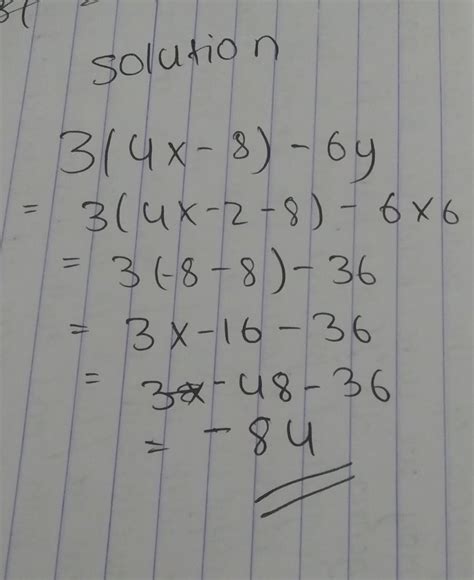 solution
3(4x-8)-6y
= 3(4x-2-8)-6x6
= 3(-8-8)-36
= 3x-16-36
= -48-36
= -84